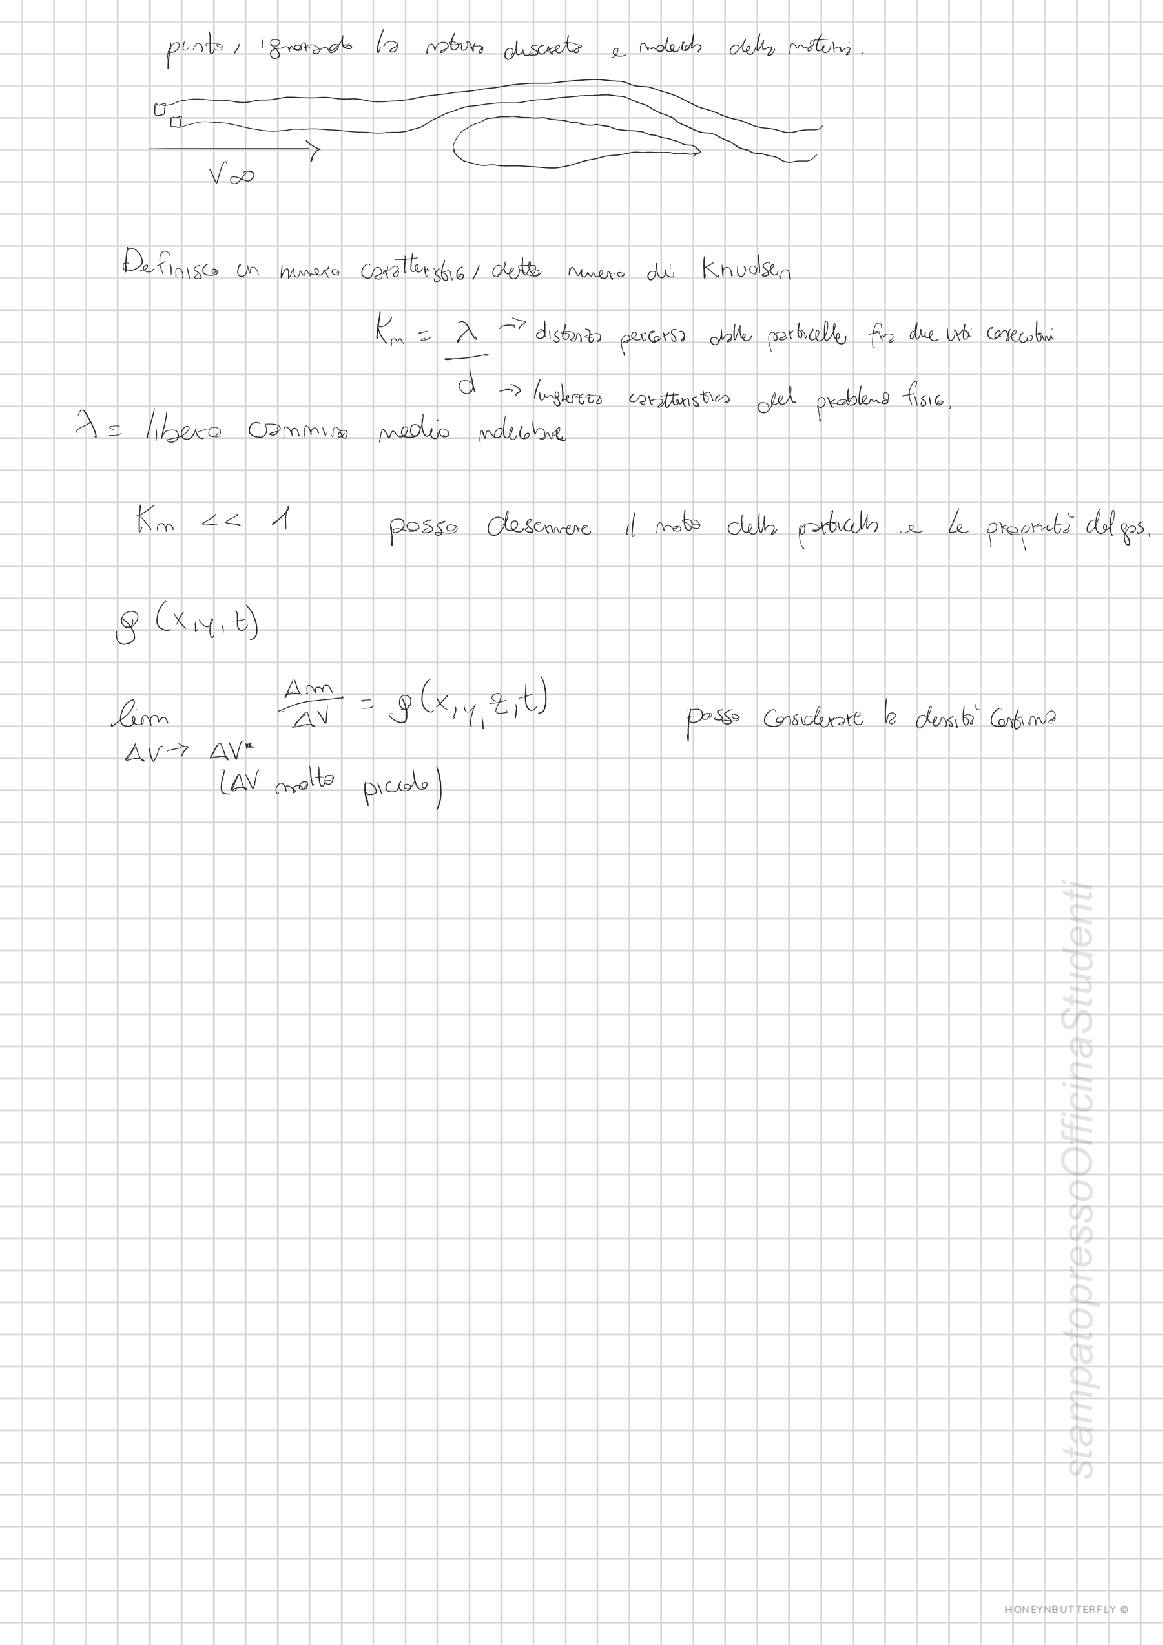 punto, ignorando la natura discreta e molecolare della materia.
V∞
Definisco un numero caratteristico, detto numero di Knudsen
Kn = λ → distanza percorsa dalle particelle fra due urti consecutivi
d → lunghezza caratteristica del problema fisico.
λ = libero cammino medio molecolare
Kn << 1 posso descrivere il moto della particella e le proprietà del gas.
ρ (x,y,t)
lim Δm/ΔV = ρ(x,y,z,t) posso considerare la densità continua
ΔV→ ΔV*
(ΔV molto piccolo)
stampatopressoOfficinaStudenti
HONEYNBUTTERFLY ©